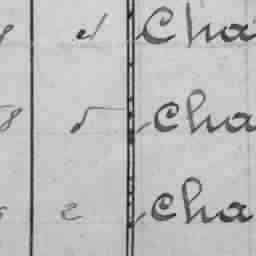 Cha
8 5 Cha
2 Cha